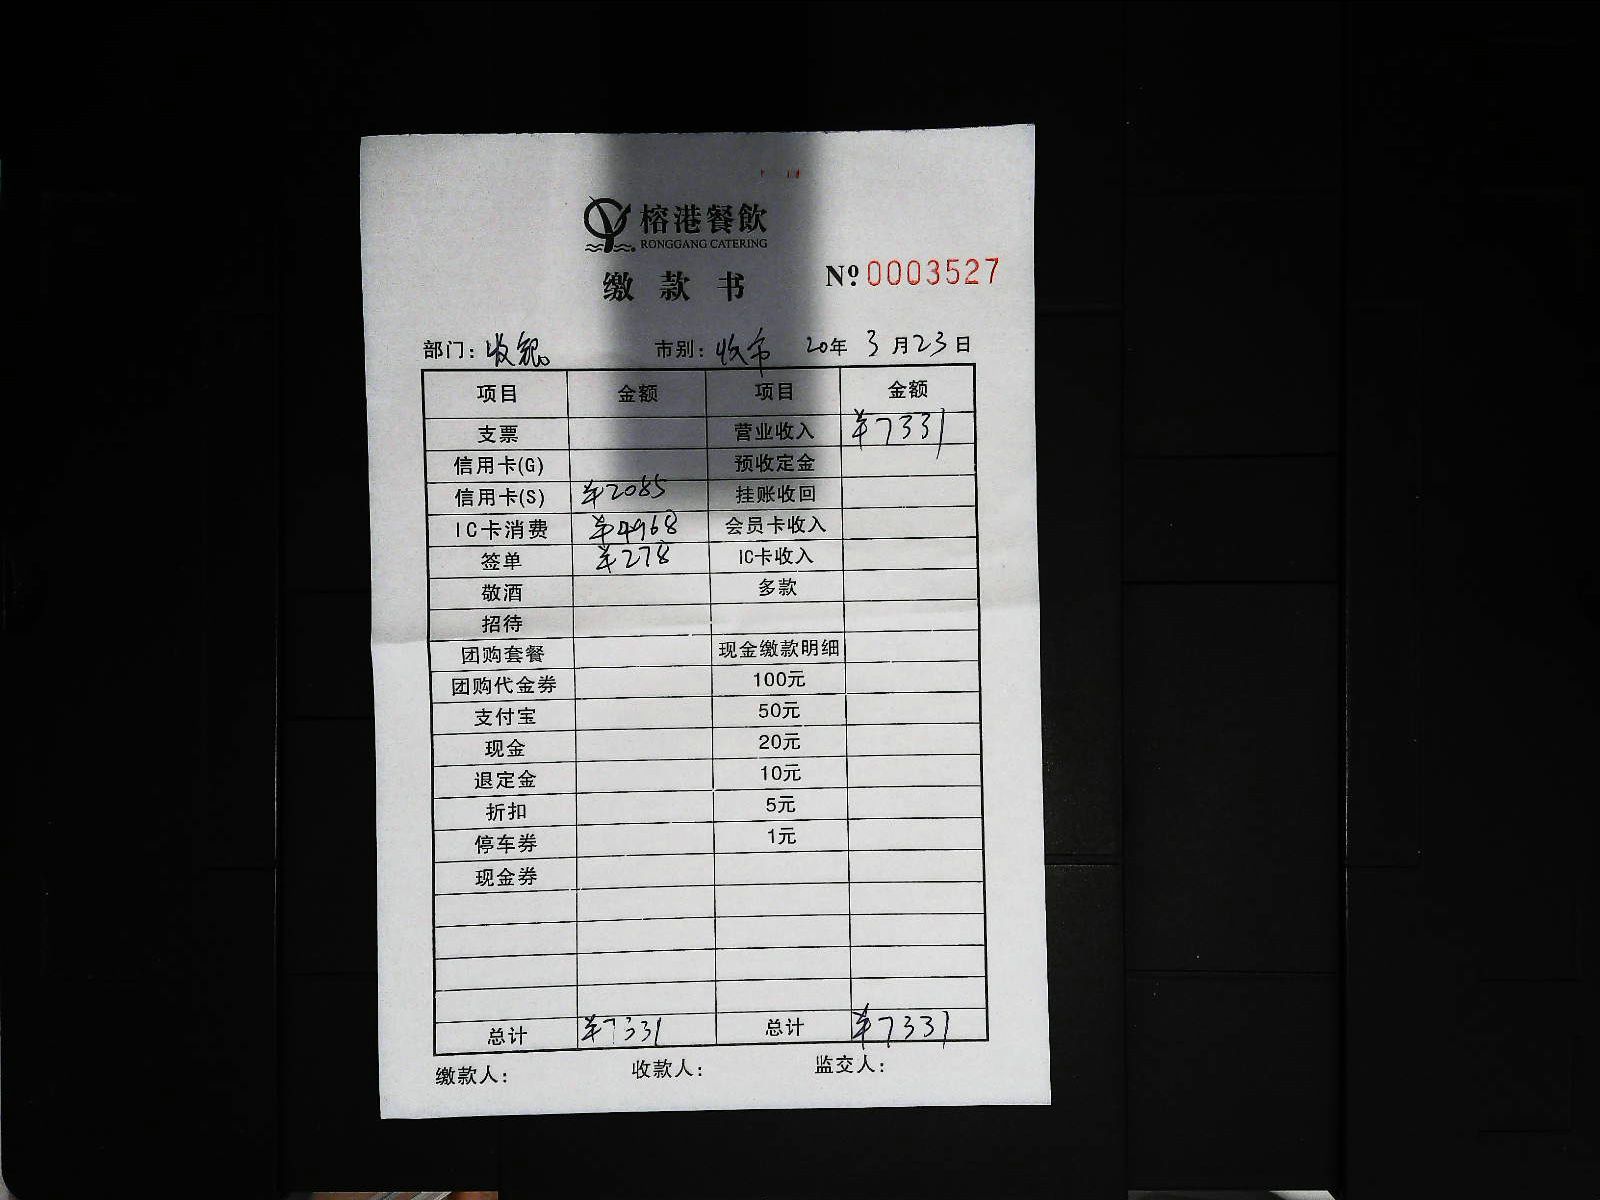 榕港餐飲
RONGGANG CATERING
缴款书 Nº 0003527
部门: 收 市别: 收市 20年 3月23日
项目 金额 项目 金额
支票 营业收入 ¥7331
信用卡(G) 预收定金
信用卡(S) ¥2085 挂账收回
IC卡消费 ¥4968 会员卡收入
签单 ¥278 IC卡收入
敬酒 多款
招待
团购套餐 现金缴款明细
团购代金券 100元
支付宝 50元
现金 20元
退定金 10元
折扣 5元
停车券 1元
现金券
总计 ¥7331 总计 ¥7331
缴款人: 收款人: 监交人: